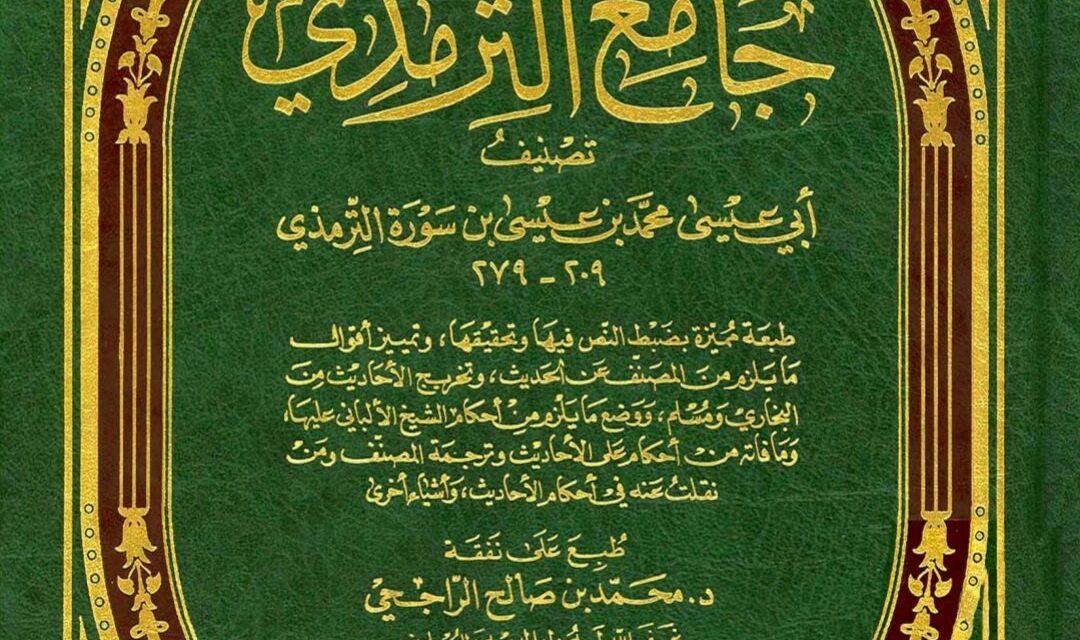 جَامِعُ التِّرمِذِيِّ
تَصْنِيفُ
أبي عيسى محمَّد بن عيسى بن سَوْرَة التِّرمذي
٢٠٩ - ٢٧٩
طبعَة مُميّزة بضَبْط النّص فيهَا وتحقيقهَا، وتمييز أقوال
مَا يَلزم منَ المصَنّف عَن الحَديث، وتخريج الأحَاديث مِنَ
البخاري وَمُسْلم، وَوَضع مَا يَلزم مِنْ أحكام الشيخ الألباني عليهَا،
وَمَا فاته مِنْ أحكام عَلى الأحَاديث وترجمَة المصَنّف ومَنْ
نقلتُ عَنه في أحكام الأحَاديث، وَأشيَاء أخرى
طُبِعَ عَلى نَفَقَة
د. محَمَّد بن صَالح الرَّاجحي
غفَرَ الله لَه